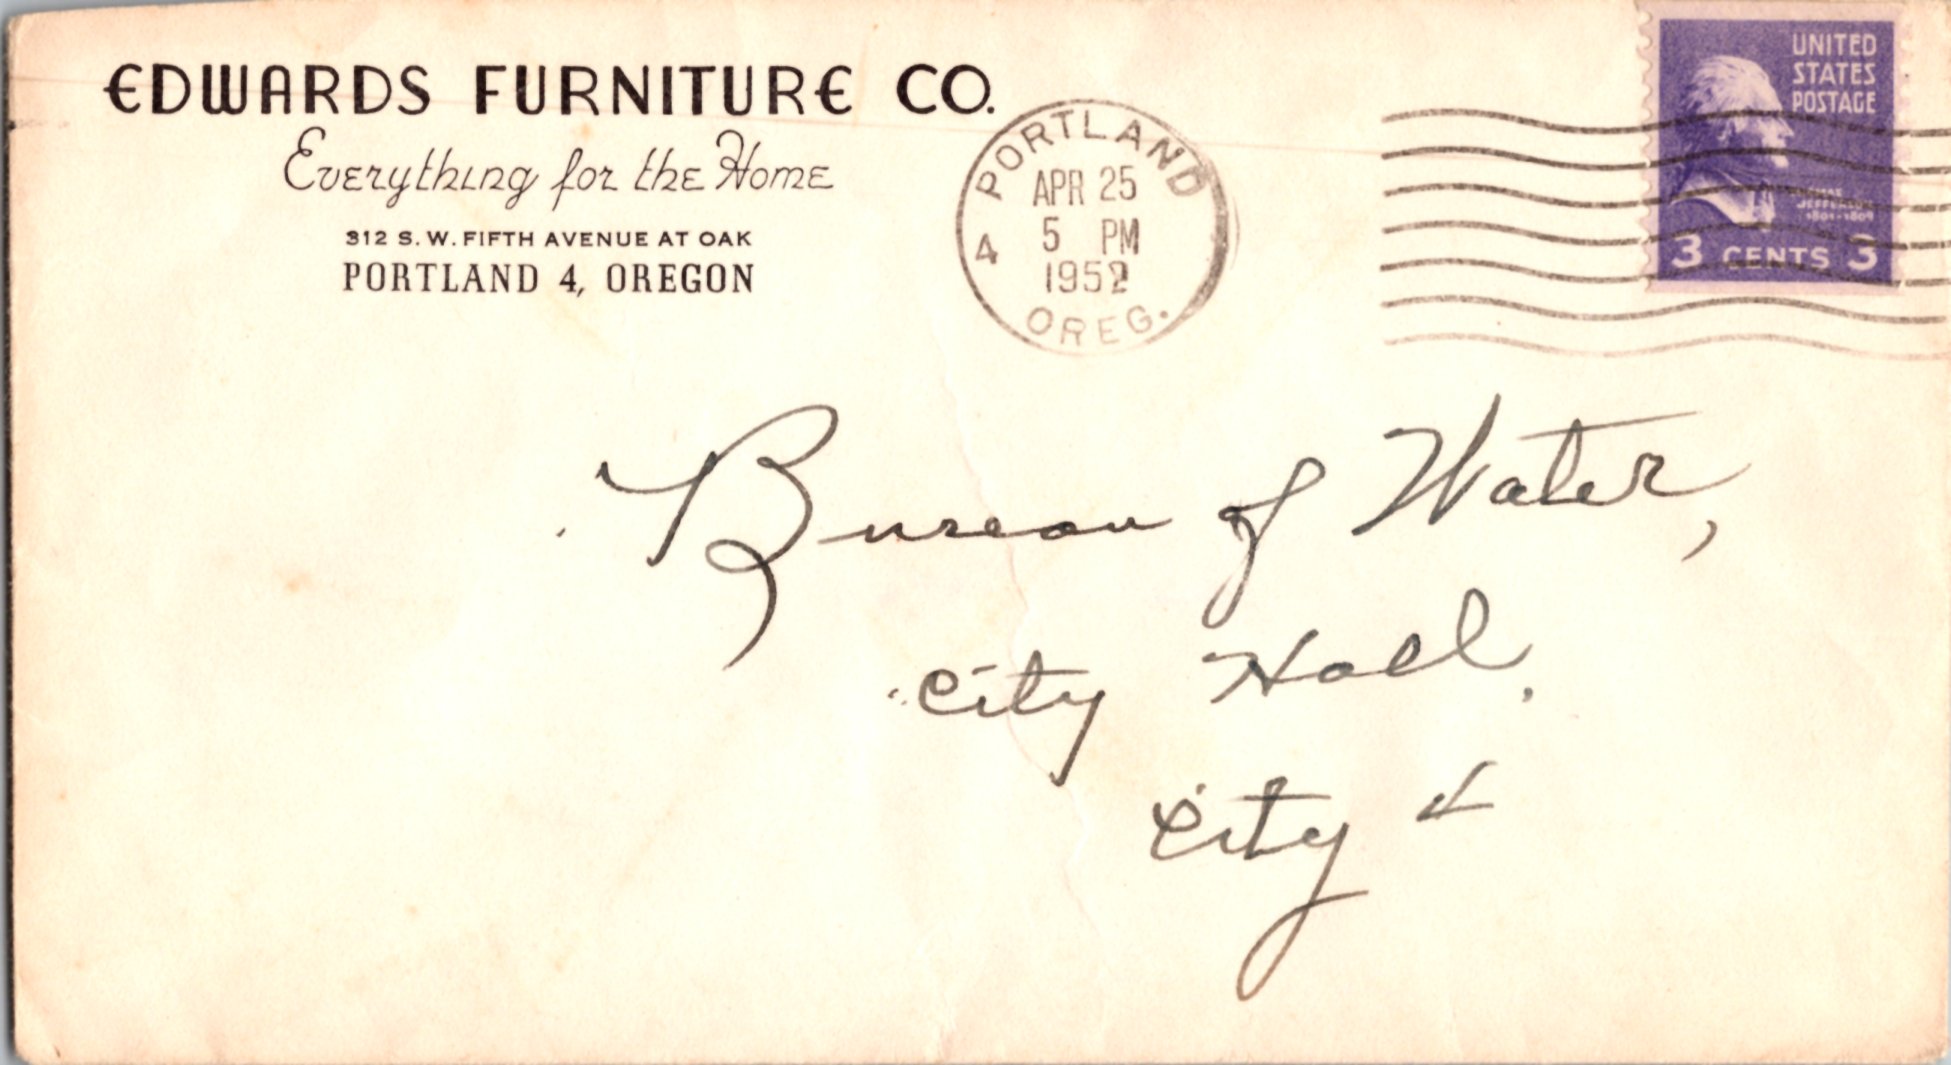 EDWARDS FURNITURE CO.
Everything for the Home
312 S. W. FIFTH AVENUE AT OAK
PORTLAND 4, OREGON
PORTLAND
APR 25
5 PM
1952
4
OREG.
UNITED
STATES
POSTAGE
JEFFERSON
1801-1809
3 CENTS 3
Bureau of Water,
City Hall,
City 4